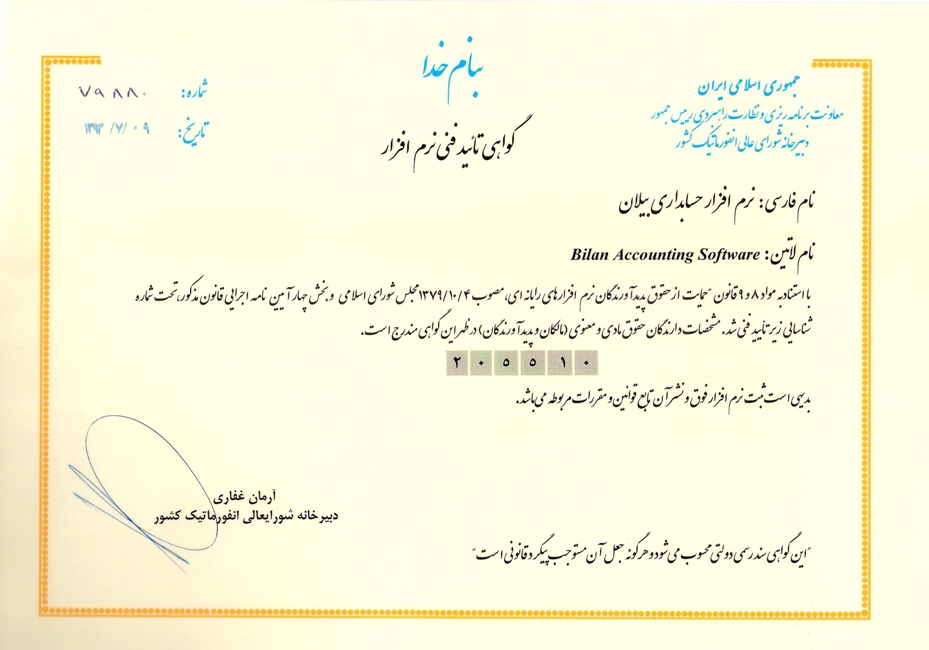 بنام خدا
جمهوری اسلامی ایران
معاونت برنامه ریزی و نظارت راهبردی رییس جمهور
دبیرخانه شورای عالی انفورماتیک کشور
شماره: ۷۹۸۸۰
تاریخ: ۱۳۹۳/۷/۰۹
گواهی تائید فنی نرم افزار
نام فارسی: نرم افزار حسابداری بیلان
نام لاتین: Bilan Accounting Software
با استناد به مواد ۸ و ۹ قانون "حمایت از حقوق پدیدآورندگان نرم افزارهای رایانه ای، مصوب ۱۳۷۹/۱۰/۴ مجلس شورای اسلامی و بخش چهار آیین نامه اجرایی قانون مذکور، تحت شماره
شناسایی زیر تأیید فنی شد. مشخصات دارندگان حقوق مادی و معنوی (مالکان و پدیدآورندگان) در ظهر این گواهی مندرج است.
۲۰۵۵۱۰
بدیهی است ثبت نرم افزار فوق و نشر آن تابع قوانین و مقررات مربوطه می باشد.
آرمان غفاری
دبیرخانه شورایعالی انفورماتیک کشور
"این گواهی سند رسمی دولتی محسوب می شود و هرگونه جعل آن مستوجب پیگرد قانونی است"